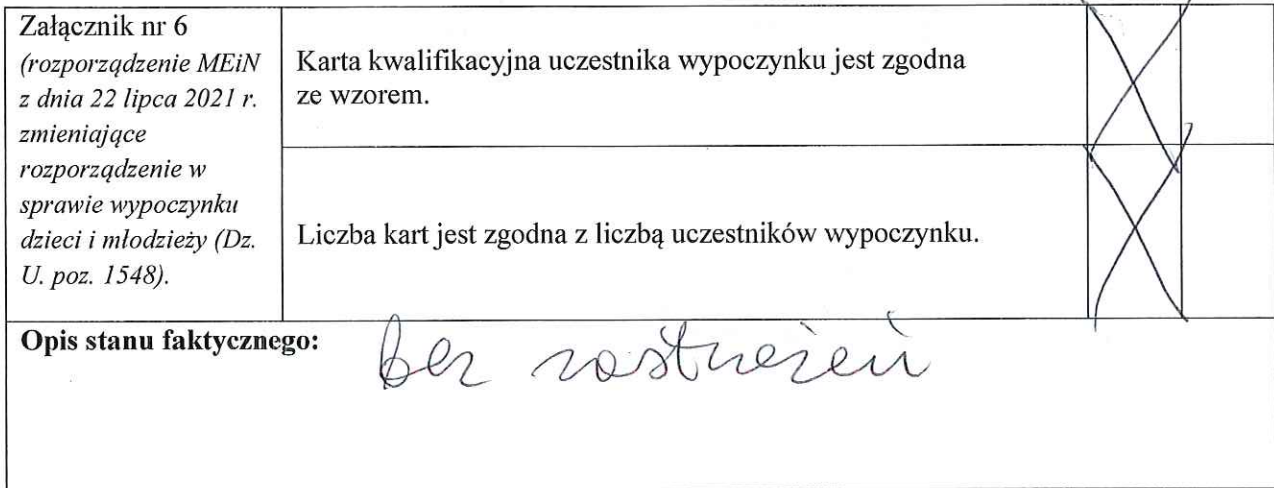 Załącznik nr 6
(rozporządzenie MEiN
z dnia 22 lipca 2021 r.
zmieniające
rozporządzenie w
sprawie wypoczynku
dzieci i młodzieży (Dz.
U. poz. 1548).
Karta kwalifikacyjna uczestnika wypoczynku jest zgodna
ze wzorem.
Liczba kart jest zgodna z liczbą uczestników wypoczynku.
Opis stanu faktycznego: bez zastrzeżeń